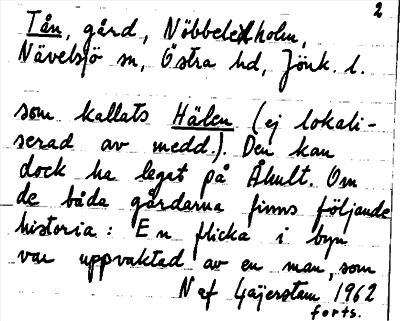 2
Tån, gård, Nöbbeleholm,
Nävelsjö sn, Östra hd, Jönk. l.
som kallats Hälen (ej lokali-
serad av medd.). Den kan
dock ha legat på Åhult. Om
de båda gårdarna finns följande
historia: En flicka i byn
var uppvaktad av en man, som
N af Geijerstam 1962
forts.